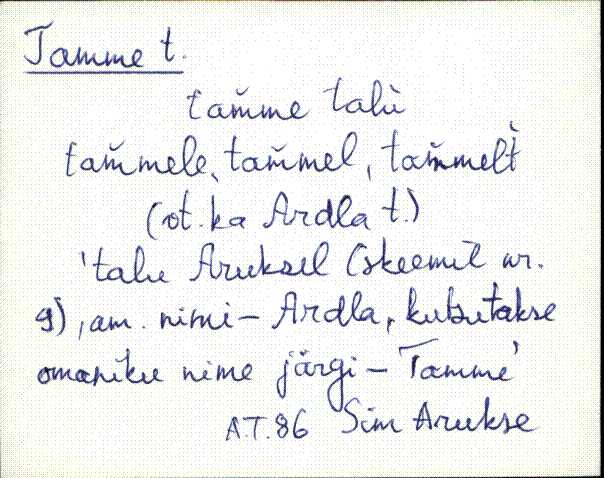 Tamme t.
tam̆me talù
tam̆mele, tam̆mel, tam̆melt̀
(vt. ka Ardla t.)
'talu Aruksel (skeemil nr.
9), am. nimi – Ardla, kutsutakse
omaniku nime järgi – Tamme'
A.T. 86 Sim Arukse